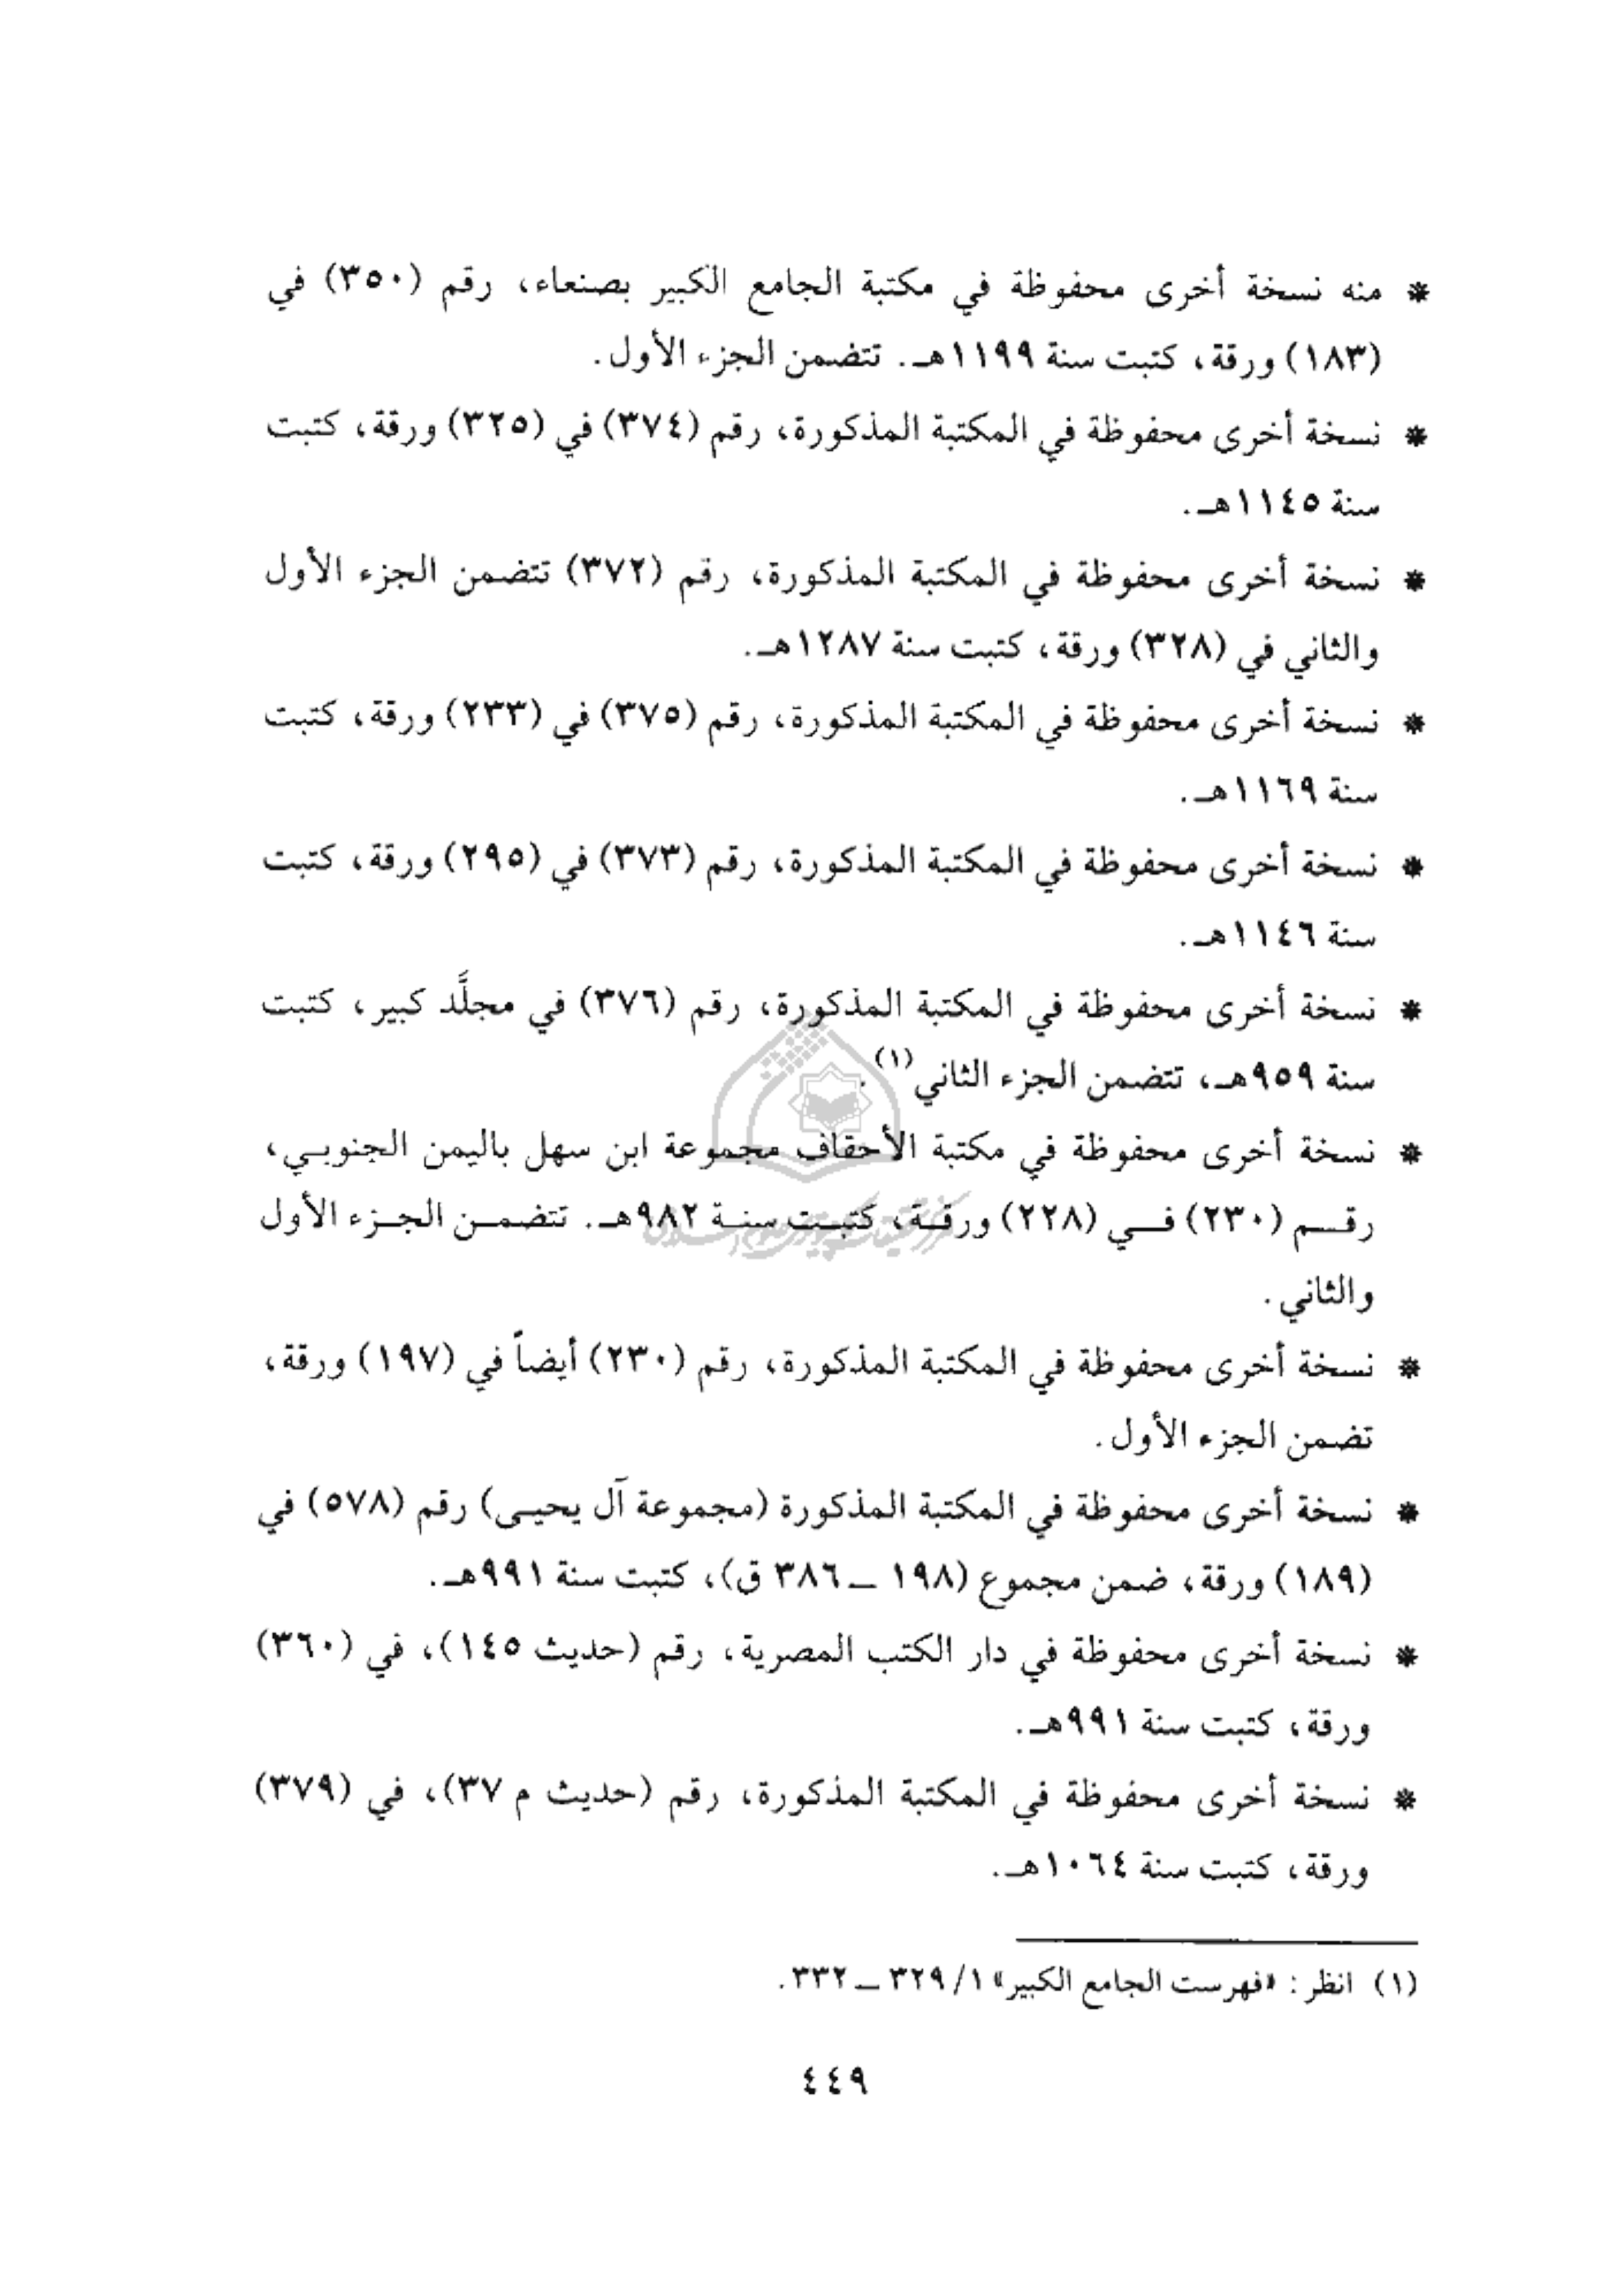 * منه نسخة أخرى محفوظة في مكتبة الجامع الكبير بصنعاء، رقم (٣٥٠) في
(١٨٣) ورقة، كتبت سنة ١١٩٩هـ. تتضمن الجزء الأول.
* نسخة أخرى محفوظة في المكتبة المذكورة، رقم (٣٧٤) في (٣٢٥) ورقة، كتبت
سنة ١١٤٥هـ.
* نسخة أخرى محفوظة في المكتبة المذكورة، رقم (٣٧٢) تتضمن الجزء الأول
والثاني في (٣٢٨) ورقة، كتبت سنة ١٢٨٧هـ.
* نسخة أخرى محفوظة في المكتبة المذكورة، رقم (٣٧٥) في (٢٣٣) ورقة، كتبت
سنة ١١٦٩هـ.
* نسخة أخرى محفوظة في المكتبة المذكورة، رقم (٣٧٣) في (٢٩٥) ورقة، كتبت
سنة ١١٤٦هـ.
* نسخة أخرى محفوظة في المكتبة المذكورة، رقم (٣٧٦) في مجلَّد كبير، كتبت
سنة ٩٥٩هـ، تتضمن الجزء الثاني(١).
* نسخة أخرى محفوظة في مكتبة الأحقاف مجموعة ابن سهل باليمن الجنوبـي،
رقـــم (٢٣٠) فـــي (٢٢٨) ورقـة، كتبـت سنـة ٩٨٢هـ. تتضمـن الجـزء الأول
والثاني.
* نسخة أخرى محفوظة في المكتبة المذكورة، رقم (٢٣٠) أيضاً في (١٩٧) ورقة،
تضمن الجزء الأول.
* نسخة أخرى محفوظة في المكتبة المذكورة (مجموعة آل يحيـى) رقم (٥٧٨) في
(١٨٩) ورقة، ضمن مجموع (١٩٨ ــ ٣٨٦ ق)، كتبت سنة ٩٩١هـ.
* نسخة أخرى محفوظة في دار الكتب المصرية، رقم (حديث ١٤٥)، في (٣٦٠)
ورقة، كتبت سنة ٩٩١هـ.
* نسخة أخرى محفوظة في المكتبة المذكورة، رقم (حديث م ٣٧)، في (٣٧٩)
ورقة، كتبت سنة ١٠٦٤هـ.
(١) انظر: «فهرست الجامع الكبير» ١/ ٣٢٩ ــ ٣٣٢.
٤٤٩